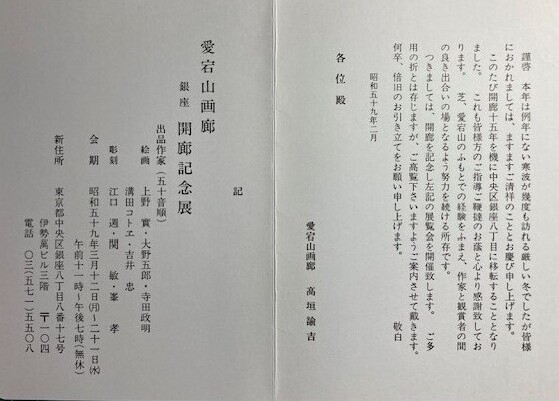 謹啓 本年は例年にない寒波が幾度も訪れる厳しい冬でしたが皆様
におかれましては、ますますご清祥のこととお慶び申し上げます。
このたび開廊十五年を機に中央区銀座八丁目に移転することとなり
ました。 これも皆様方のご指導ご鞭撻のお蔭と心より感謝致してお
ります。 芝、愛宕山のふもとでの経験をふまえ、作家と観賞者の間
の良き出合いの場となるよう努力を続ける所存です。
つきましては、開廊を記念し左記の展覧会を開催致します。 ご多
用の折とは存じますが、ご高覧下さいますようご案内させて戴きます。
何卒、倍旧のお引き立てをお願い申し上げます。 敬白
昭和五十九年二月
愛宕山画廊 高垣諭吉
各位殿
記
愛宕山画廊 銀座 開廊記念展
出品作家(五十音順)
絵画 上野 實・大野五郎・寺田政明
溝田コトエ・吉井 忠
彫刻 江口 週・関 敏・峯 孝
会期 昭和五十九年三月十二日(月)〜二十一日(水)
午前十一時〜午後七時(無休)
新住所 東京都中央区銀座八丁目八番十七号
伊勢萬ビル三階 〒一〇四
電話 〇三(五七一)五五〇八